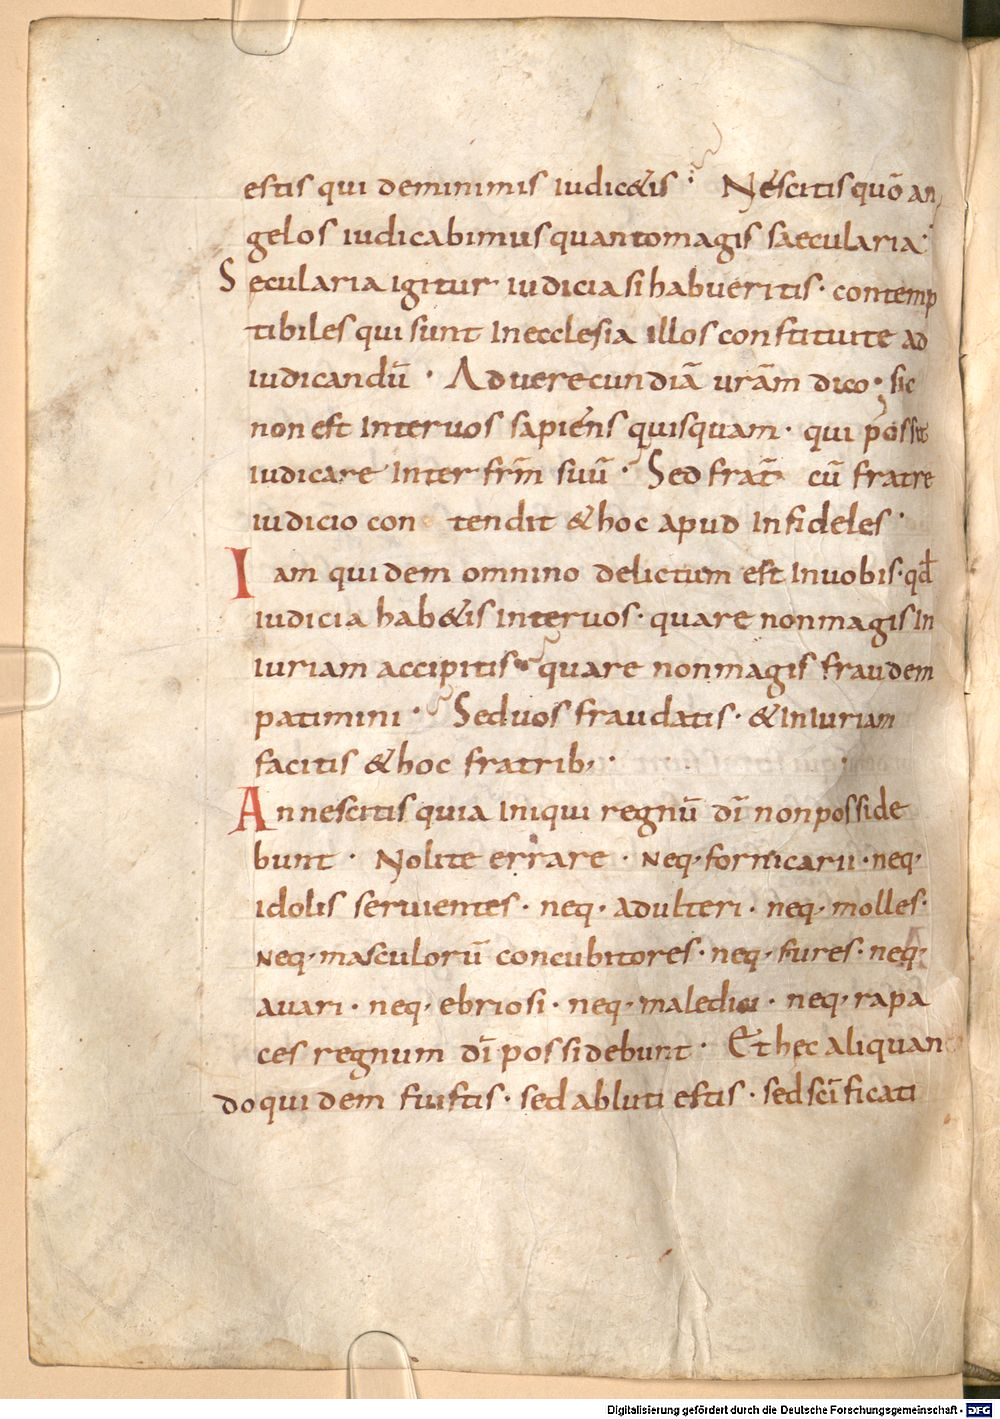 estis qui deminimis iudic&is · Nescitis quō an
gelos iudicabimus quantomagis saecularia ·
Secularia igitur iudicia si habueritis · contemp
tibiles qui sunt Inecclesia illos constituite ad
iudicandū · Ad uerecundiā urām dico · sic
non est Inter uos sapiens quisquam · qui possit
iudicare Inter frm̄ suū · Sed frat̄ cū fratre
iudicio con tendit & hoc apud Infideles ·
Iam quidem omnino delictum est Inuobis · qđ
iudicia hab&is Inter uos · quare nonmagis In
iuriam accipitis · quare nonmagis fraudem
patimini · Seduos fraudatis · & InIuriam
facitis & hoc fratrib; ·
An nescitis quia Iniqui regnū dī nonposside
bunt · Nolite errare · neq· fornicarii · neq·
idolis seruientes · neq· adulteri · neq· molles ·
neq· masculorū concubitores · neq· fures · neq·
auari · neq· ebriosi · neq· maledici · neq· rapa
ces regnum dī possidebunt · Et hęc aliquan
do quidem fuistis · sed abluti estis · sed scīficati
Digitalisierung gefördert durch die Deutsche Forschungsgemeinschaft - DFG